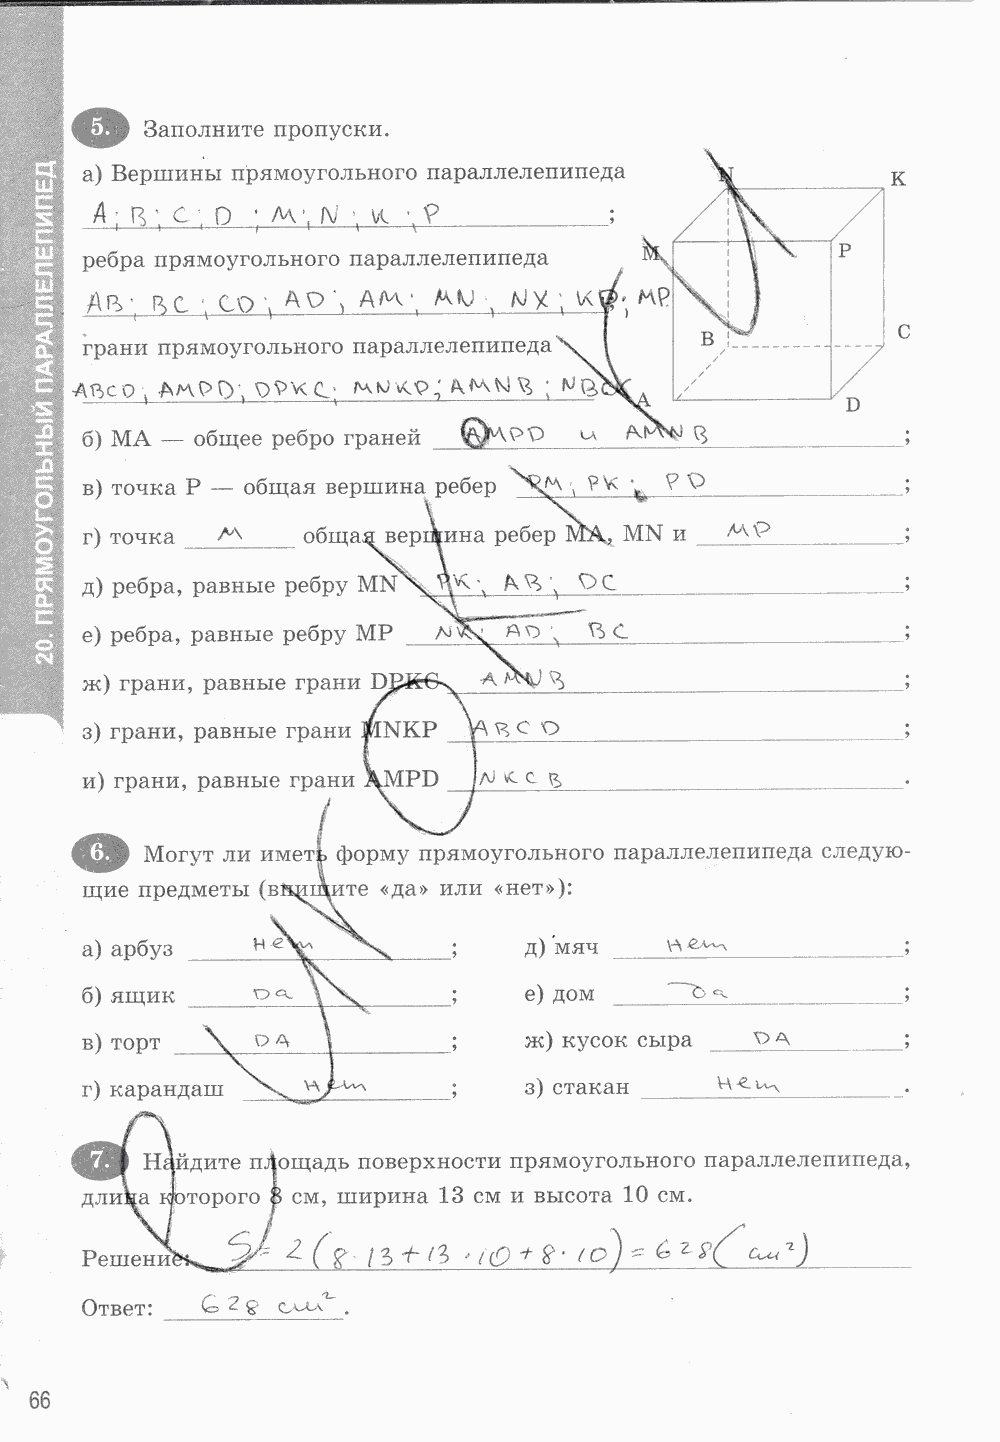 20. ПРЯМОУГОЛЬНЫЙ ПАРАЛЛЕЛЕПИПЕД
5. Заполните пропуски.
а) Вершины прямоугольного параллелепипеда
A; B; C; D; M; N; K; P ;
ребра прямоугольного параллелепипеда
AB; BC; CD; AD; AM; MN; NX; KP; MP
грани прямоугольного параллелепипеда
ABCD; AMPD; DPKC; MNKP; AMNB; NBCK
N K
M P
B C
A D
б) MA — общее ребро граней AMPD и AMNB ;
в) точка P — общая вершина ребер PM; PK; PD ;
г) точка M общая вершина ребер MA, MN и MP ;
д) ребра, равные ребру MN PK; AB; DC ;
е) ребра, равные ребру MP NK; AD; BC ;
ж) грани, равные грани DPKC AMNB ;
з) грани, равные грани MNKP ABCD ;
и) грани, равные грани AMPD NKCB .
6. Могут ли иметь форму прямоугольного параллелепипеда следую-
щие предметы (впишите «да» или «нет»):
а) арбуз нет ; д) мяч нет ;
б) ящик да ; е) дом да ;
в) торт ДА ; ж) кусок сыра ДА ;
г) карандаш нет ; з) стакан нет .
7. Найдите площадь поверхности прямоугольного параллелепипеда,
длина которого 8 см, ширина 13 см и высота 10 см.
Решение: S = 2(8·13+13·10+8·10) = 628 (см²)
Ответ: 628 см².
66